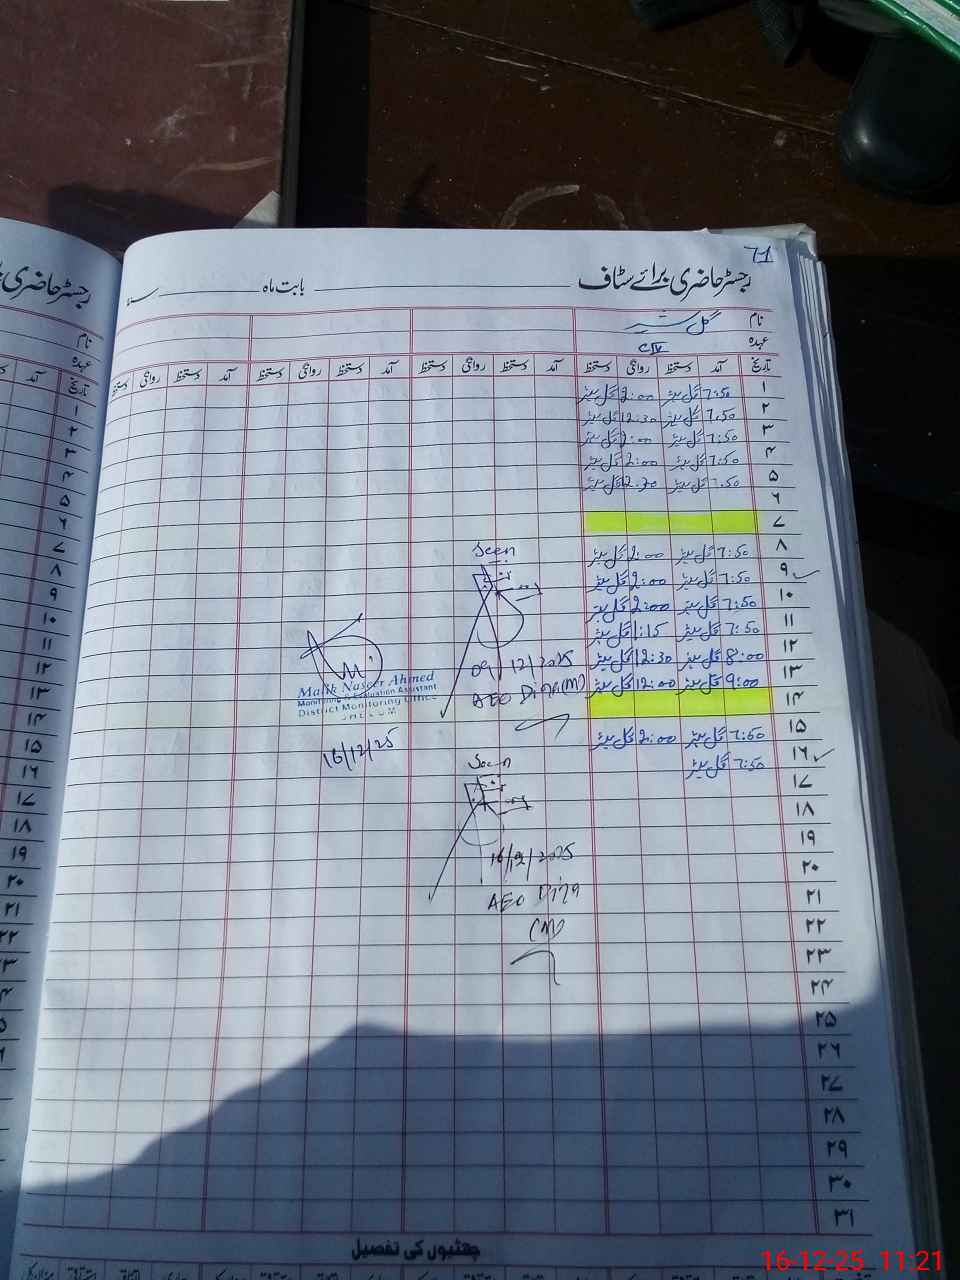 71
رجسٹر حاضری برائے سٹاف
بابت ماہ
سنہ
نام گل
عہدہ CIV
تاریخ آمد دستخط روانگی دستخط آمد دستخط روانگی دستخط آمد دستخط روانگی دستخط
۱ 7:50 گل 2:00 گل
۲ 7:50 گل 12:30 گل
۳ 7:50 گل 2:00 گل
۴ 7:50 گل 2:00 گل
۵ 7:50 گل گل
۶
۷
۸ 7:50 گل 2:00 گل
۹ 7:50 گل 2:00 گل
۱۰ 7:50 گل 2:00 گل
۱۱ 7:50 گل 1:15 گل
۱۲ 8:00 گل 12:30 گل
۱۳ 9:00 گل 12:00 گل
۱۴
۱۵ 7:50 گل 2:00 گل
۱۶ 7:50 گل
۱۷
۱۸
۱۹
۲۰
۲۱
۲۲
۲۳
۲۴
۲۵
۲۶
۲۷
۲۸
۲۹
۳۰
۳۱
Seen
09/12/2025
AEO Dina (M)
Malik Naseer Ahmed
Monitoring & Evaluation Assistant
District Monitoring Office
JHELUM
16/12/25
Seen
16/12/2025
AEO Dina
(M)
چھٹیوں کی تفصیل
رجسٹر حاضری
نام
عہدہ
تاریخ آمد
۱
۲
۳
۴
۵
۶
۷
۸
۹
۱۰
۱۱
۱۲
۱۳
۱۴
۱۵
۱۶
۱۷
۱۸
۱۹
۲۰
۲۱
16-12-25 11:21